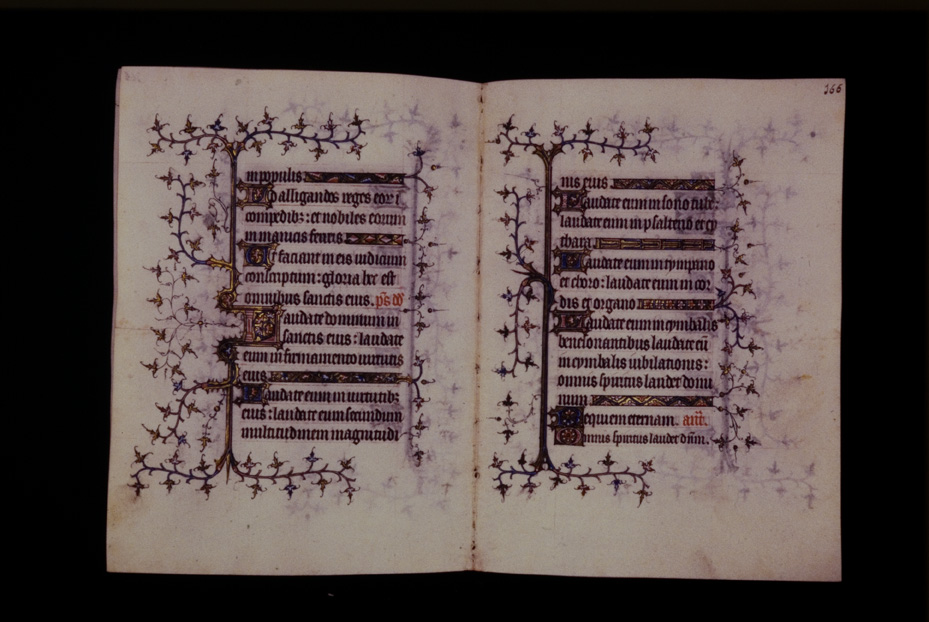 in populis
Ad alligandos reges eor i
compedib; : et nobiles eorum
in manicis ferreis
Ut faciant in eis iudicium
conscriptum : gloria hec est
omnibus sanctis eius. ps dd
Laudate dominum in
sanctis eius : laudate
eum in firmamento virtutis
eius
Laudate eum in virtutib;
eius : laudate eum secundum
multitudinem magnitudi
166
nis eius
Laudate eum in sono tube :
laudate eum in psalterio et cy
thara
Laudate eum in tympano
et choro : laudate eum in cor
dis et organo
Laudate eum in cymbalis
benesonantibus laudate eū
in cymbalis iubilationis :
omnis spiritus laudet domi
num
Requiem eternam. ant.
Omnis spiritus laudet dñm.